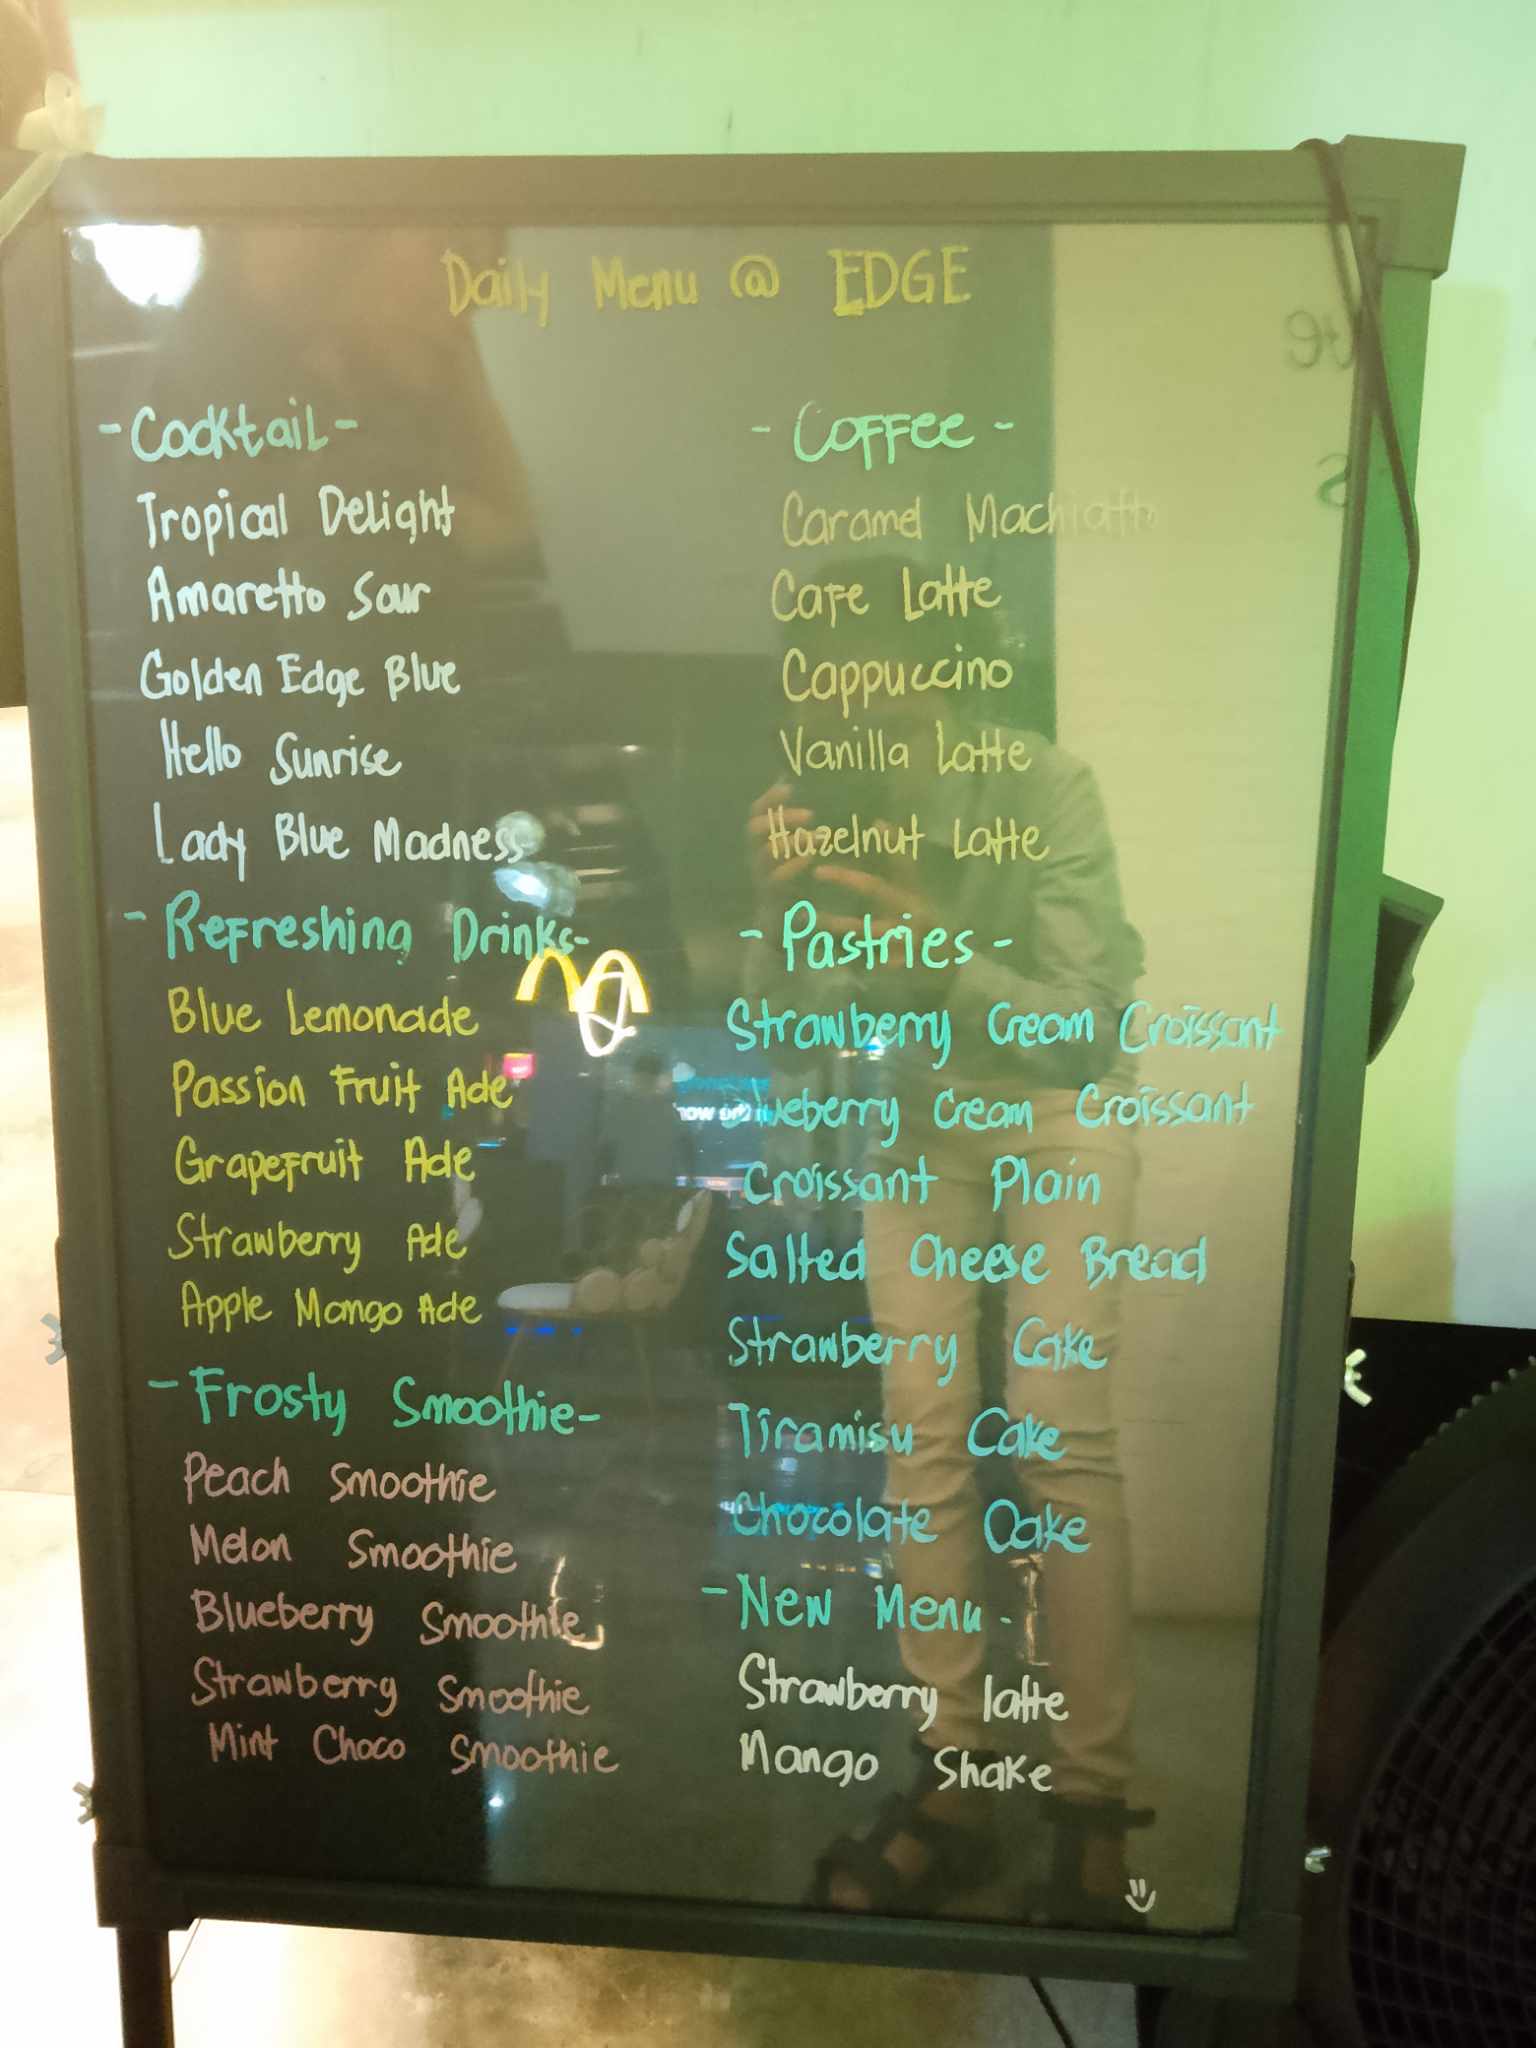 Daily Menu @ EDGE
- Cocktail -
Tropical Delight
Amaretto Sour
Golden Edge Blue
Hello Sunrise
Lady Blue Madness
- Refreshing Drinks -
Blue Lemonade
Passion Fruit Ade
Grapefruit Ade
Strawberry Ade
Apple Mango Ade
- Frosty Smoothie -
Peach Smoothie
Melon Smoothie
Blueberry Smoothie
Strawberry Smoothie
Mint Choco Smoothie
- Coffee -
Caramel Machiatto
Cafe Latte
Cappuccino
Vanilla Latte
Hazelnut Latte
- Pastries -
Strawberry Cream Croissant
Blueberry Cream Croissant
Croissant Plain
Salted Cheese Bread
Strawberry Cake
Tiramisu Cake
Chocolate Cake
- New Menu -
Strawberry latte
Mango Shake